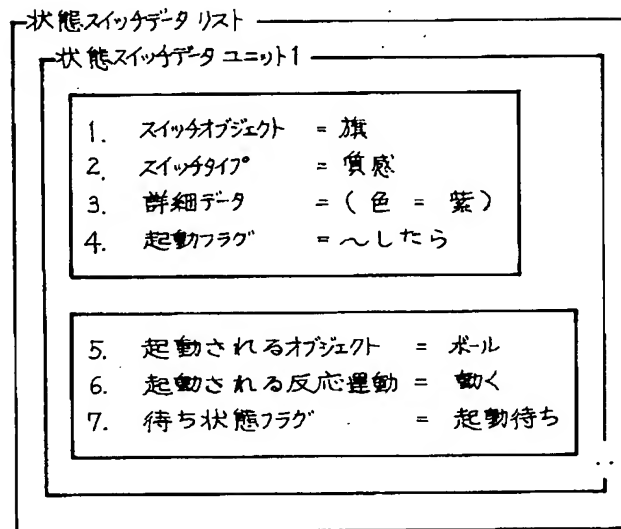 状態スイッチデータ リスト
状態スイッチデータ ユニット1
1. スイッチオブジェクト = 旗
2. スイッチタイプ = 質感
3. 詳細データ = ( 色 = 紫 )
4. 起動フラグ = ～したら
5. 起動されるオブジェクト = ボール
6. 起動される反応運動 = 動く
7. 待ち状態フラグ = 起動待ち